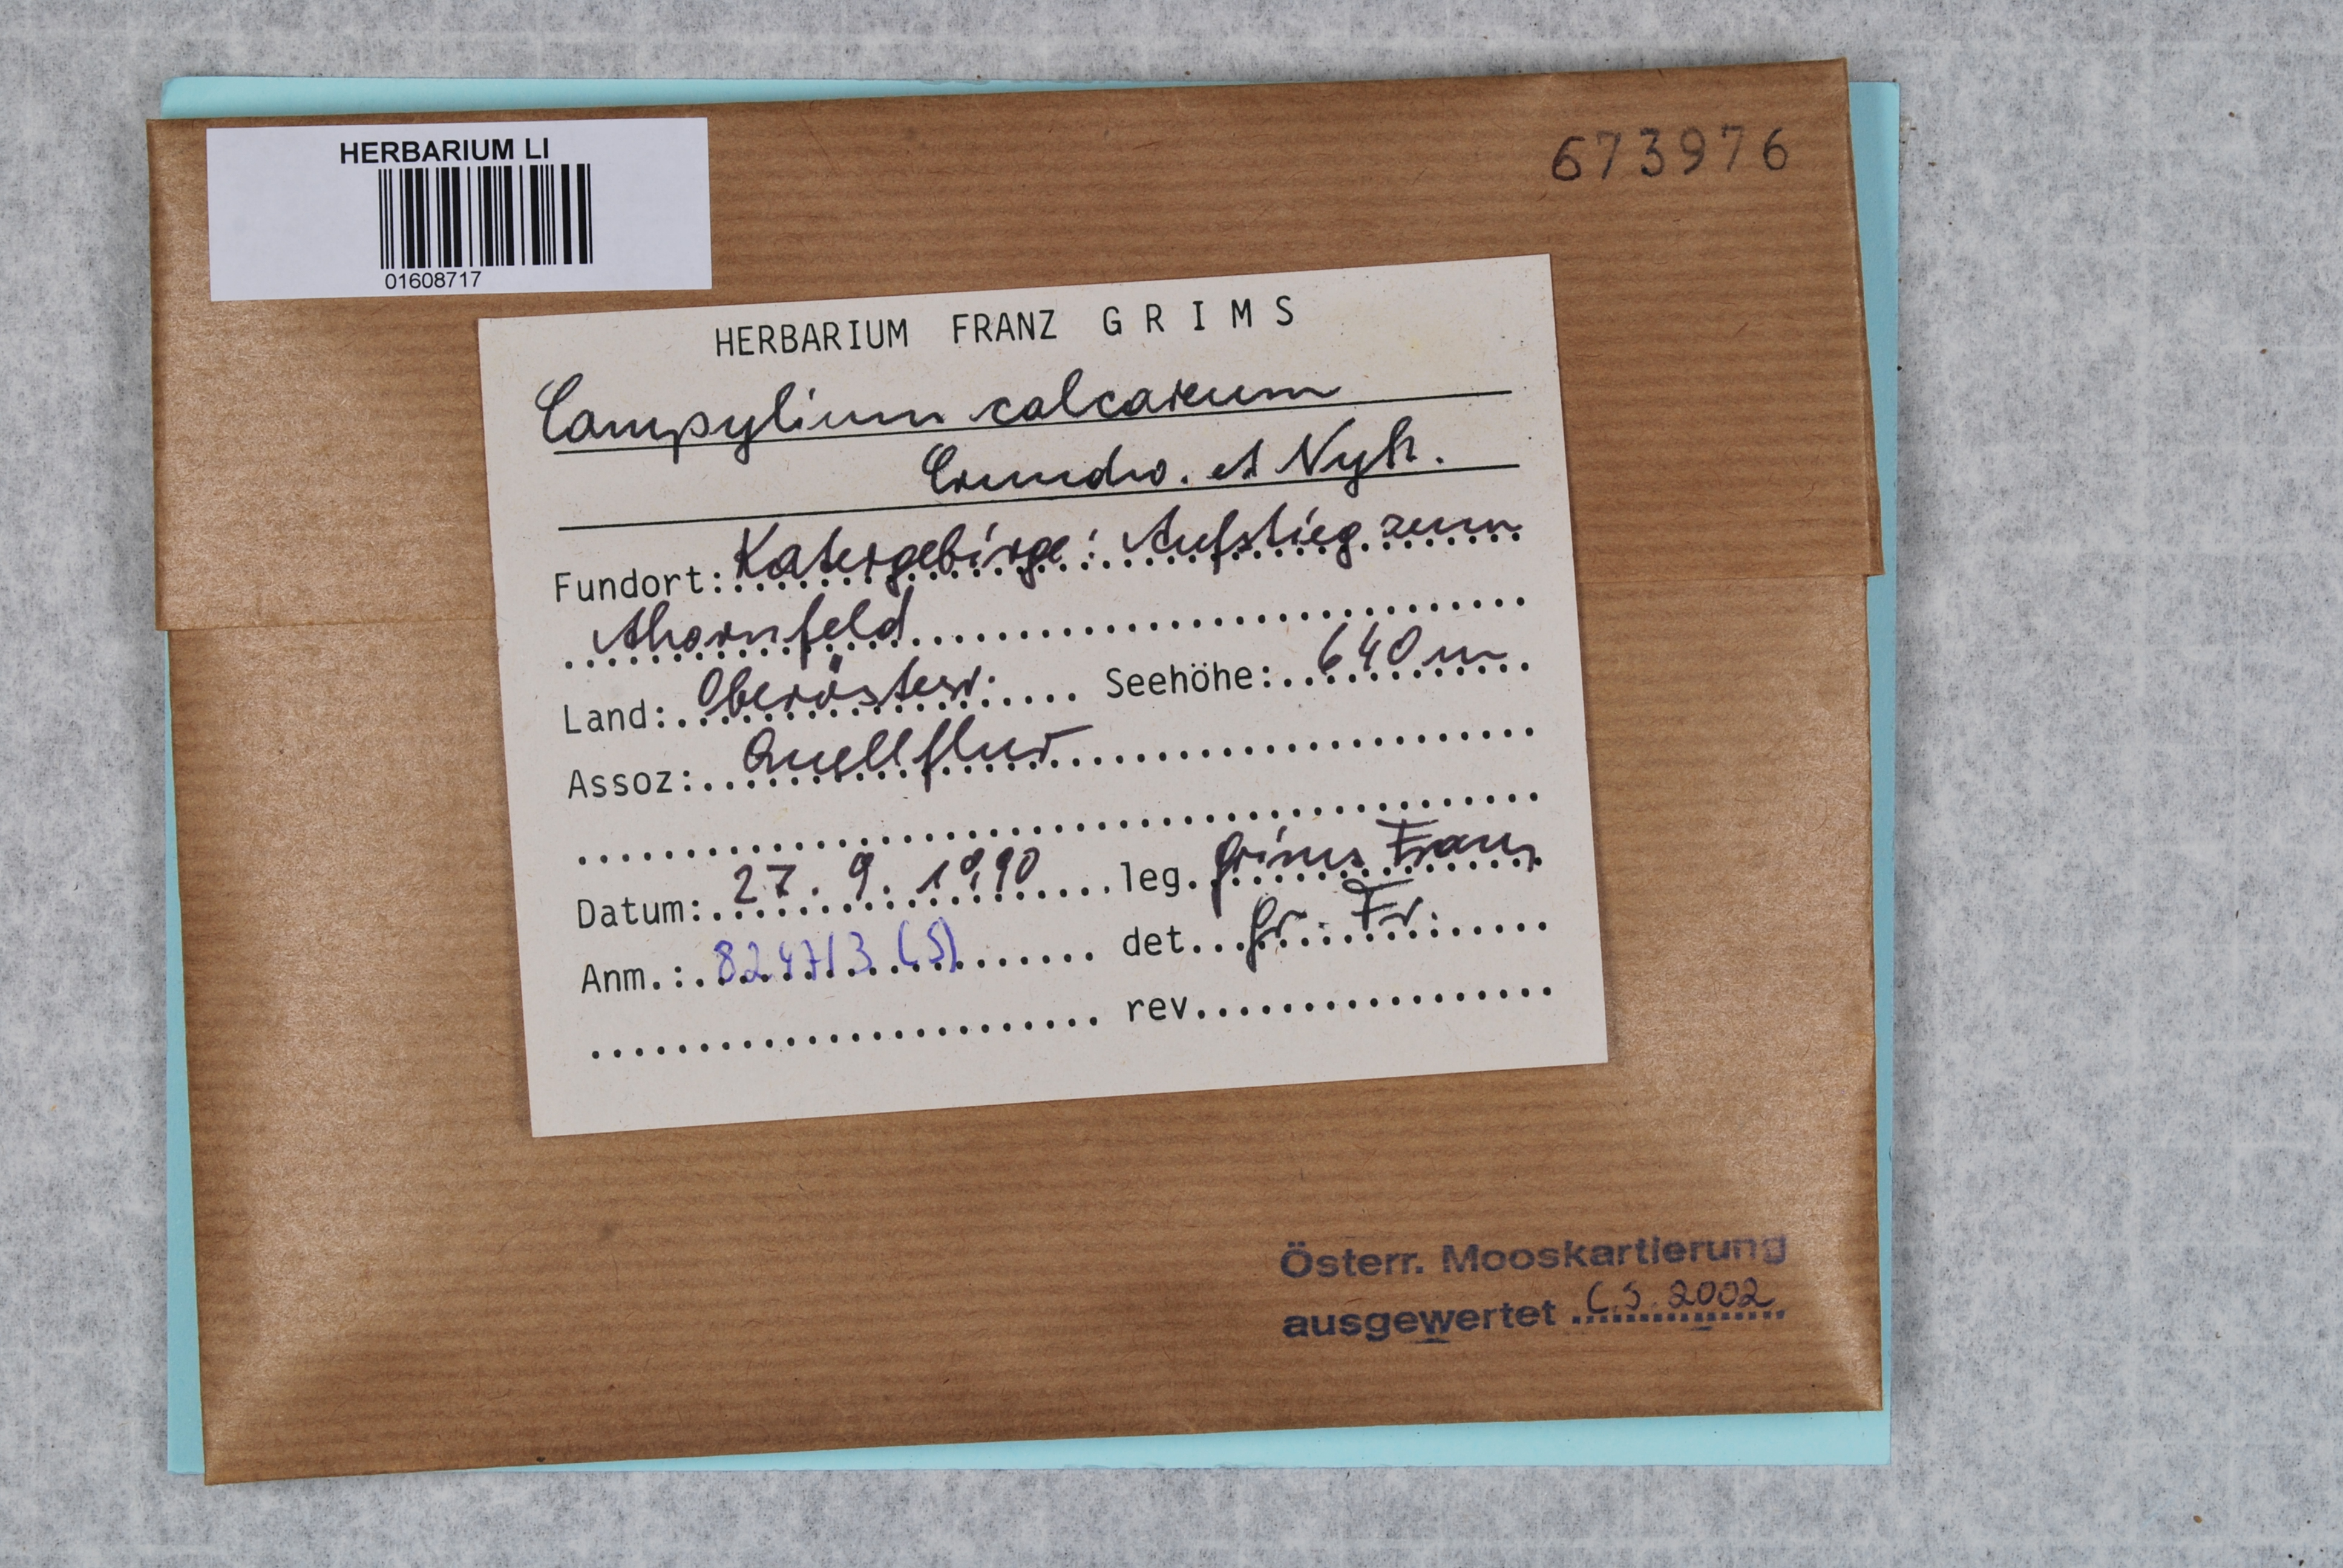 HERBARIUM LI
01608717
673976
HERBARIUM FRANZ GRIMS
Campylium calcareum
Crundw. et Nyh.
Fundort: Katergebirge: Aufstieg zum
Ahornfeld
Land: Oberösterr. Seehöhe: 640 m
Assoz: Quellflur
Datum: 27. 9. 1990 leg. Grims Franz
Anm.: 8247/3 (S) det. Gr. Fr.
rev.
Österr. Mooskartierung
ausgewertet C.S. 2002